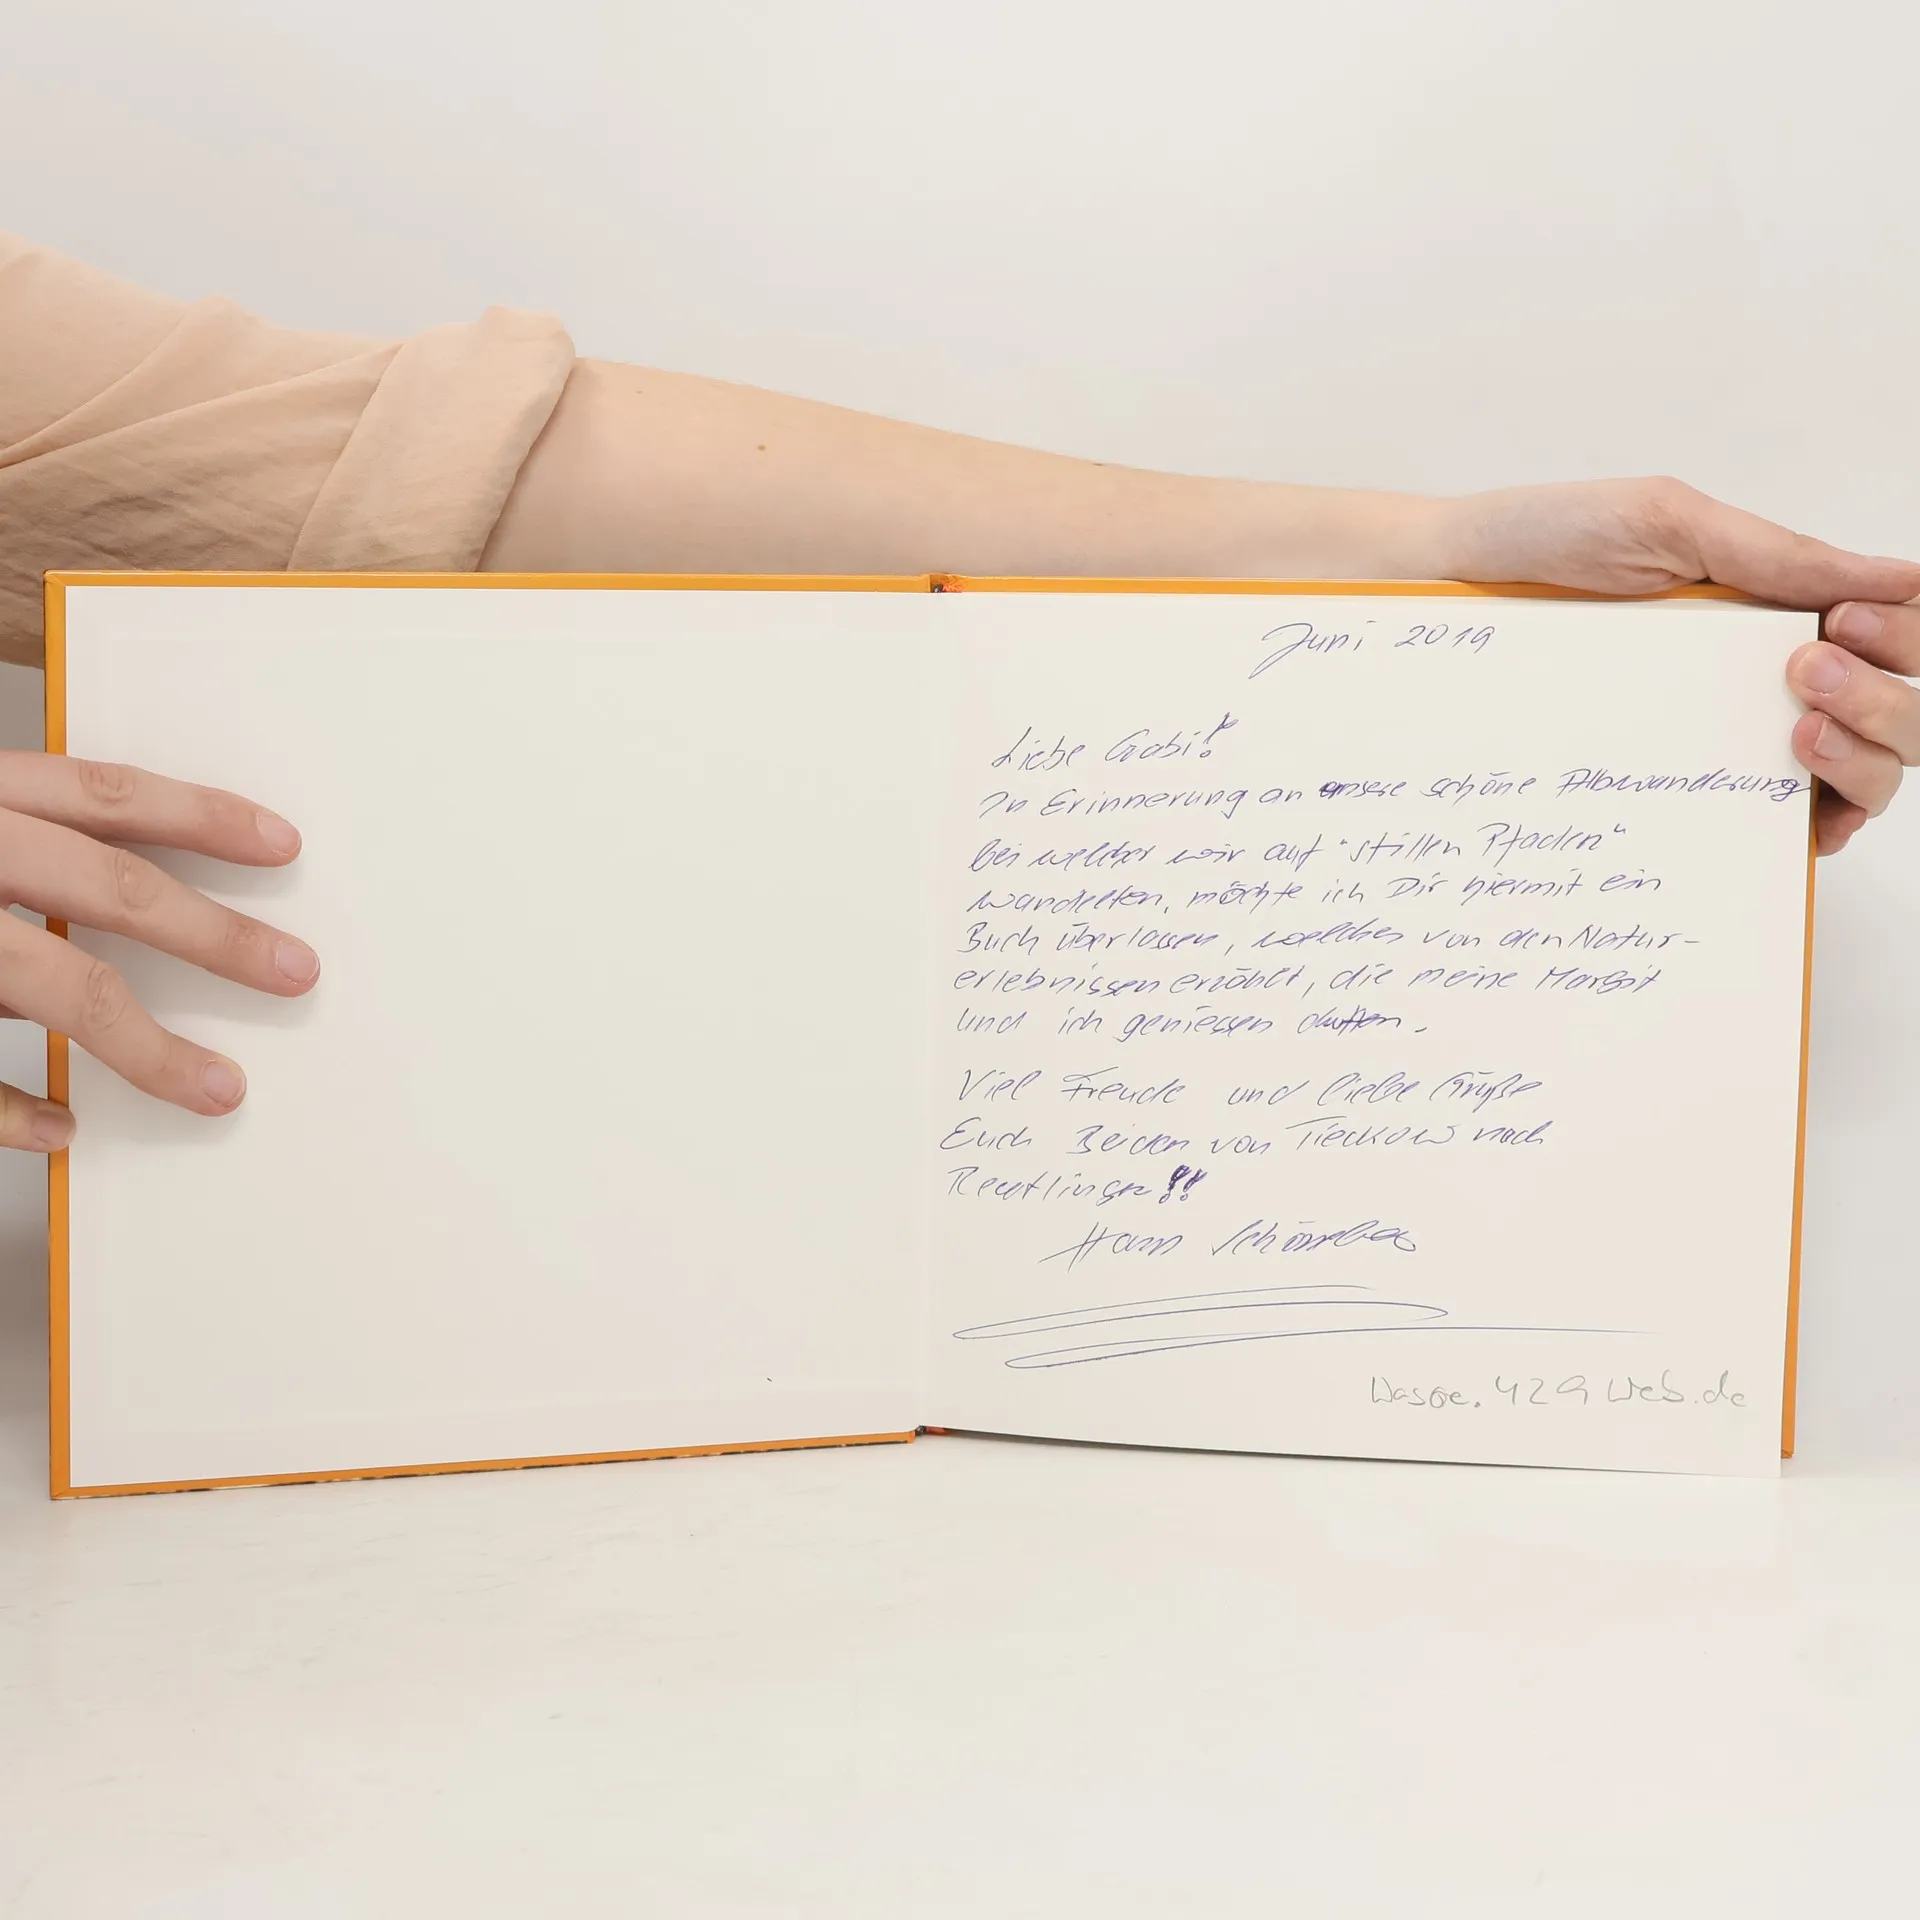 Juni 2019
Liebe Gabi!
In Erinnerung an unsere schöne Albwanderung
bei welcher wir auf "stillen Pfaden"
wandelten, möchte ich Dir hiermit ein
Buch überlassen, welches von den Natur-
erlebnissen erzählt, die meine Margit
und ich geniessen durften.
Viel Freude und liebe Grüße
Euch Beiden von Tieckow nach
Reutlingen!!
Hans
Web.de